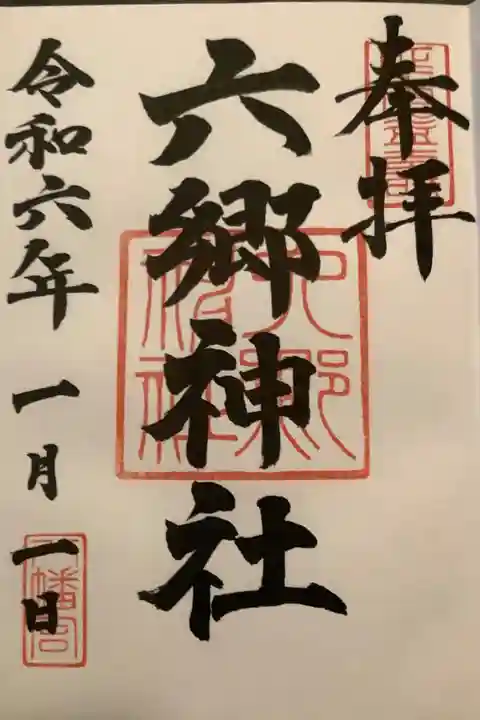 奉拝
六郷神社
令和六年一月一日
六郷神社
八幡宮